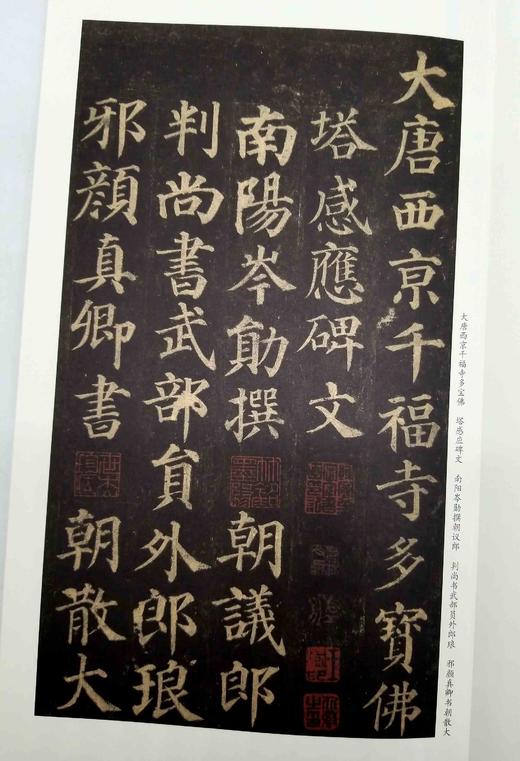 大唐西京千福寺多寶佛
塔感應碑文
南陽岑勛撰 朝議郎
判尚書武部員外郎琅
邪顏真卿書 朝散大
大唐西京千福寺多宝佛 塔感应碑文 南阳岑勋撰朝议郎 判尚书武部员外郎琅 邪颜真卿书朝散大